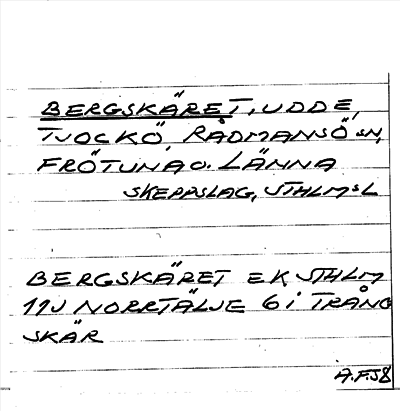 BERGSKÄRET, UDDE,
TJOCKÖ, RÅDMANSÖ SN,
FRÖTUNA O. LÄNNA
SKEPPSLAG, STHLMS L
BERGSKÄRET EK STHLM
11J NORRTÄLJE 6 i TRÅNG
SKÄR
A.F.58